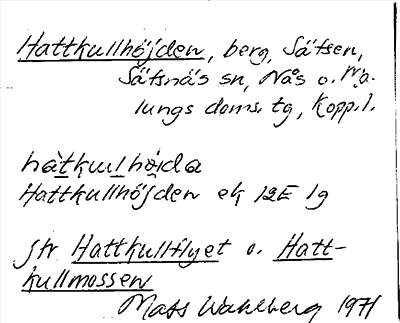 Hattkullhöjden, berg, Säfsen,
Säfsnäs sn, Nås o. Ma-
lungs doms. tg, Kopp. l.
hàtkuḷhö̀jda
Hattkullhöjden ek 12E 1g
jfr Hattkullflyet o. Hatt-
kullmossen
Mats Wahlberg 1971